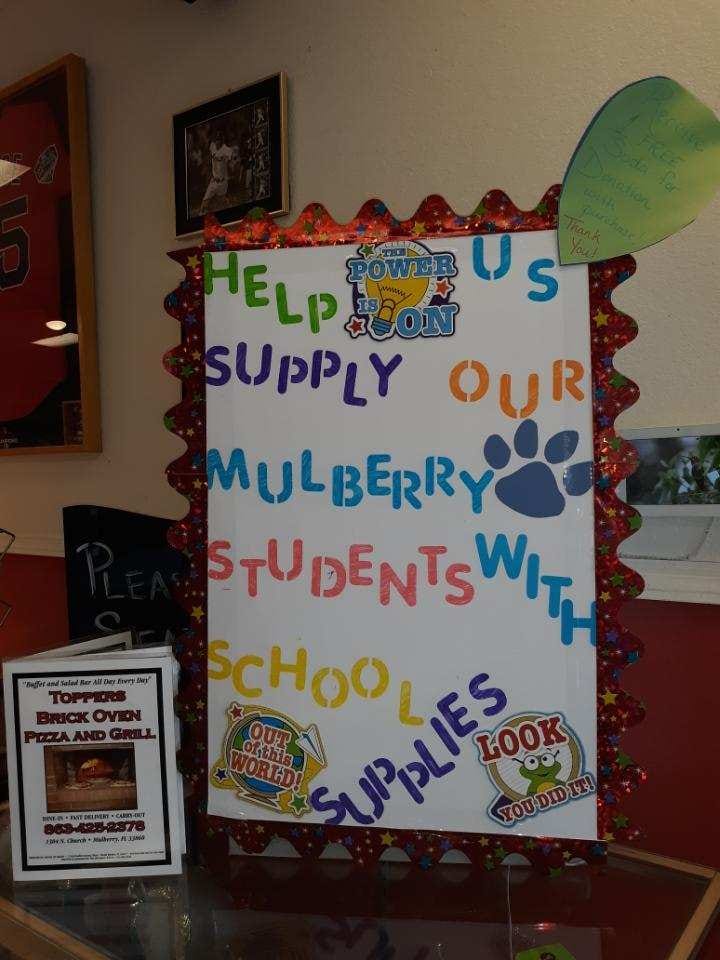 Receive
1 FREE
Soda for
Donation
with
purchase
Thank
You!
HELP US
THE
POWER
IS
ON
SUPPLY OUR
MULBERRY
STUDENTS WITH
SCHOOL
SUPPLIES
OUT
of this
WORLD!
LOOK
YOU DID IT!
5
PLEA
SEA
"Buffet and Salad Bar All Day Every Day"
TOPPERS
BRICK OVEN
PIZZA AND GRILL
DINE-IN • FAST DELIVERY • CARRY-OUT
863-425-2378
1304 N. Church • Mulberry, FL 33860